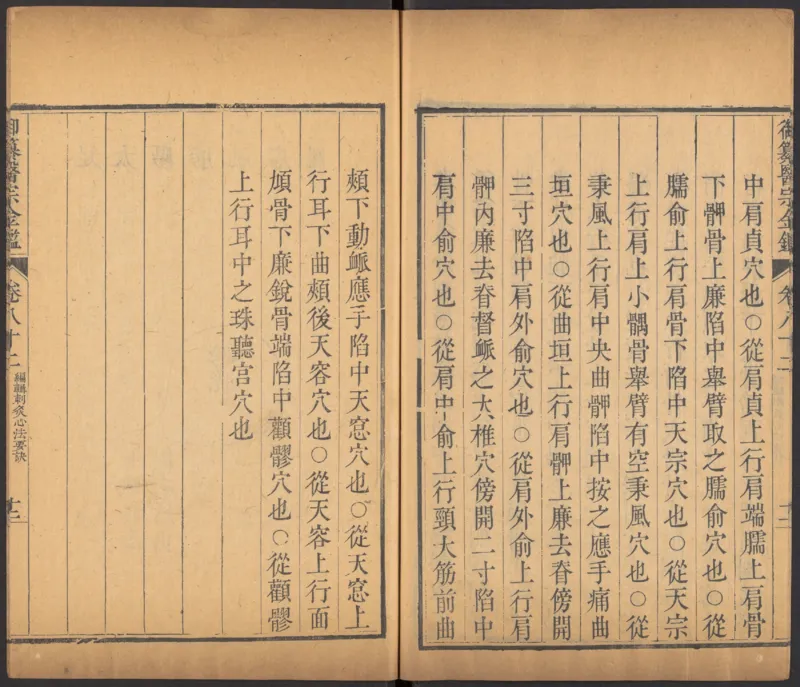 中肩貞穴也○從肩貞上行肩端臑上肩骨
下髀骨上廉陷中舉臂取之臑俞穴也○從
臑俞上行肩骨下陷中天宗穴也○從天宗
上行肩上小髃骨舉臂有空秉風穴也○從
秉風上行肩中央曲髀陷中按之應手痛曲
垣穴也○從曲垣上行肩髀上廉去脊傍開
三寸陷中肩外俞穴也○從肩外俞上行肩
髀內廉去脊督脈之大椎穴傍開二寸陷中
肩中俞穴也○從肩中俞上行頸大筋前曲
頰下動脈應手陷中天窓穴也○從天窓上
行耳下曲頰後天容穴也○從天容上行面
頄骨下廉銳骨端陷中顴髎穴也○從顴髎
上行耳中之珠聽宮穴也
御纂醫宗金鑑
卷八十二
編輯刺灸心法要訣